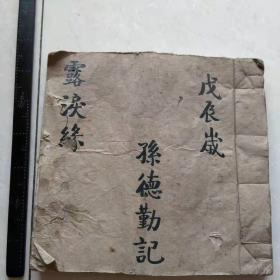 戊辰歲
孫德勤記
露淚緣